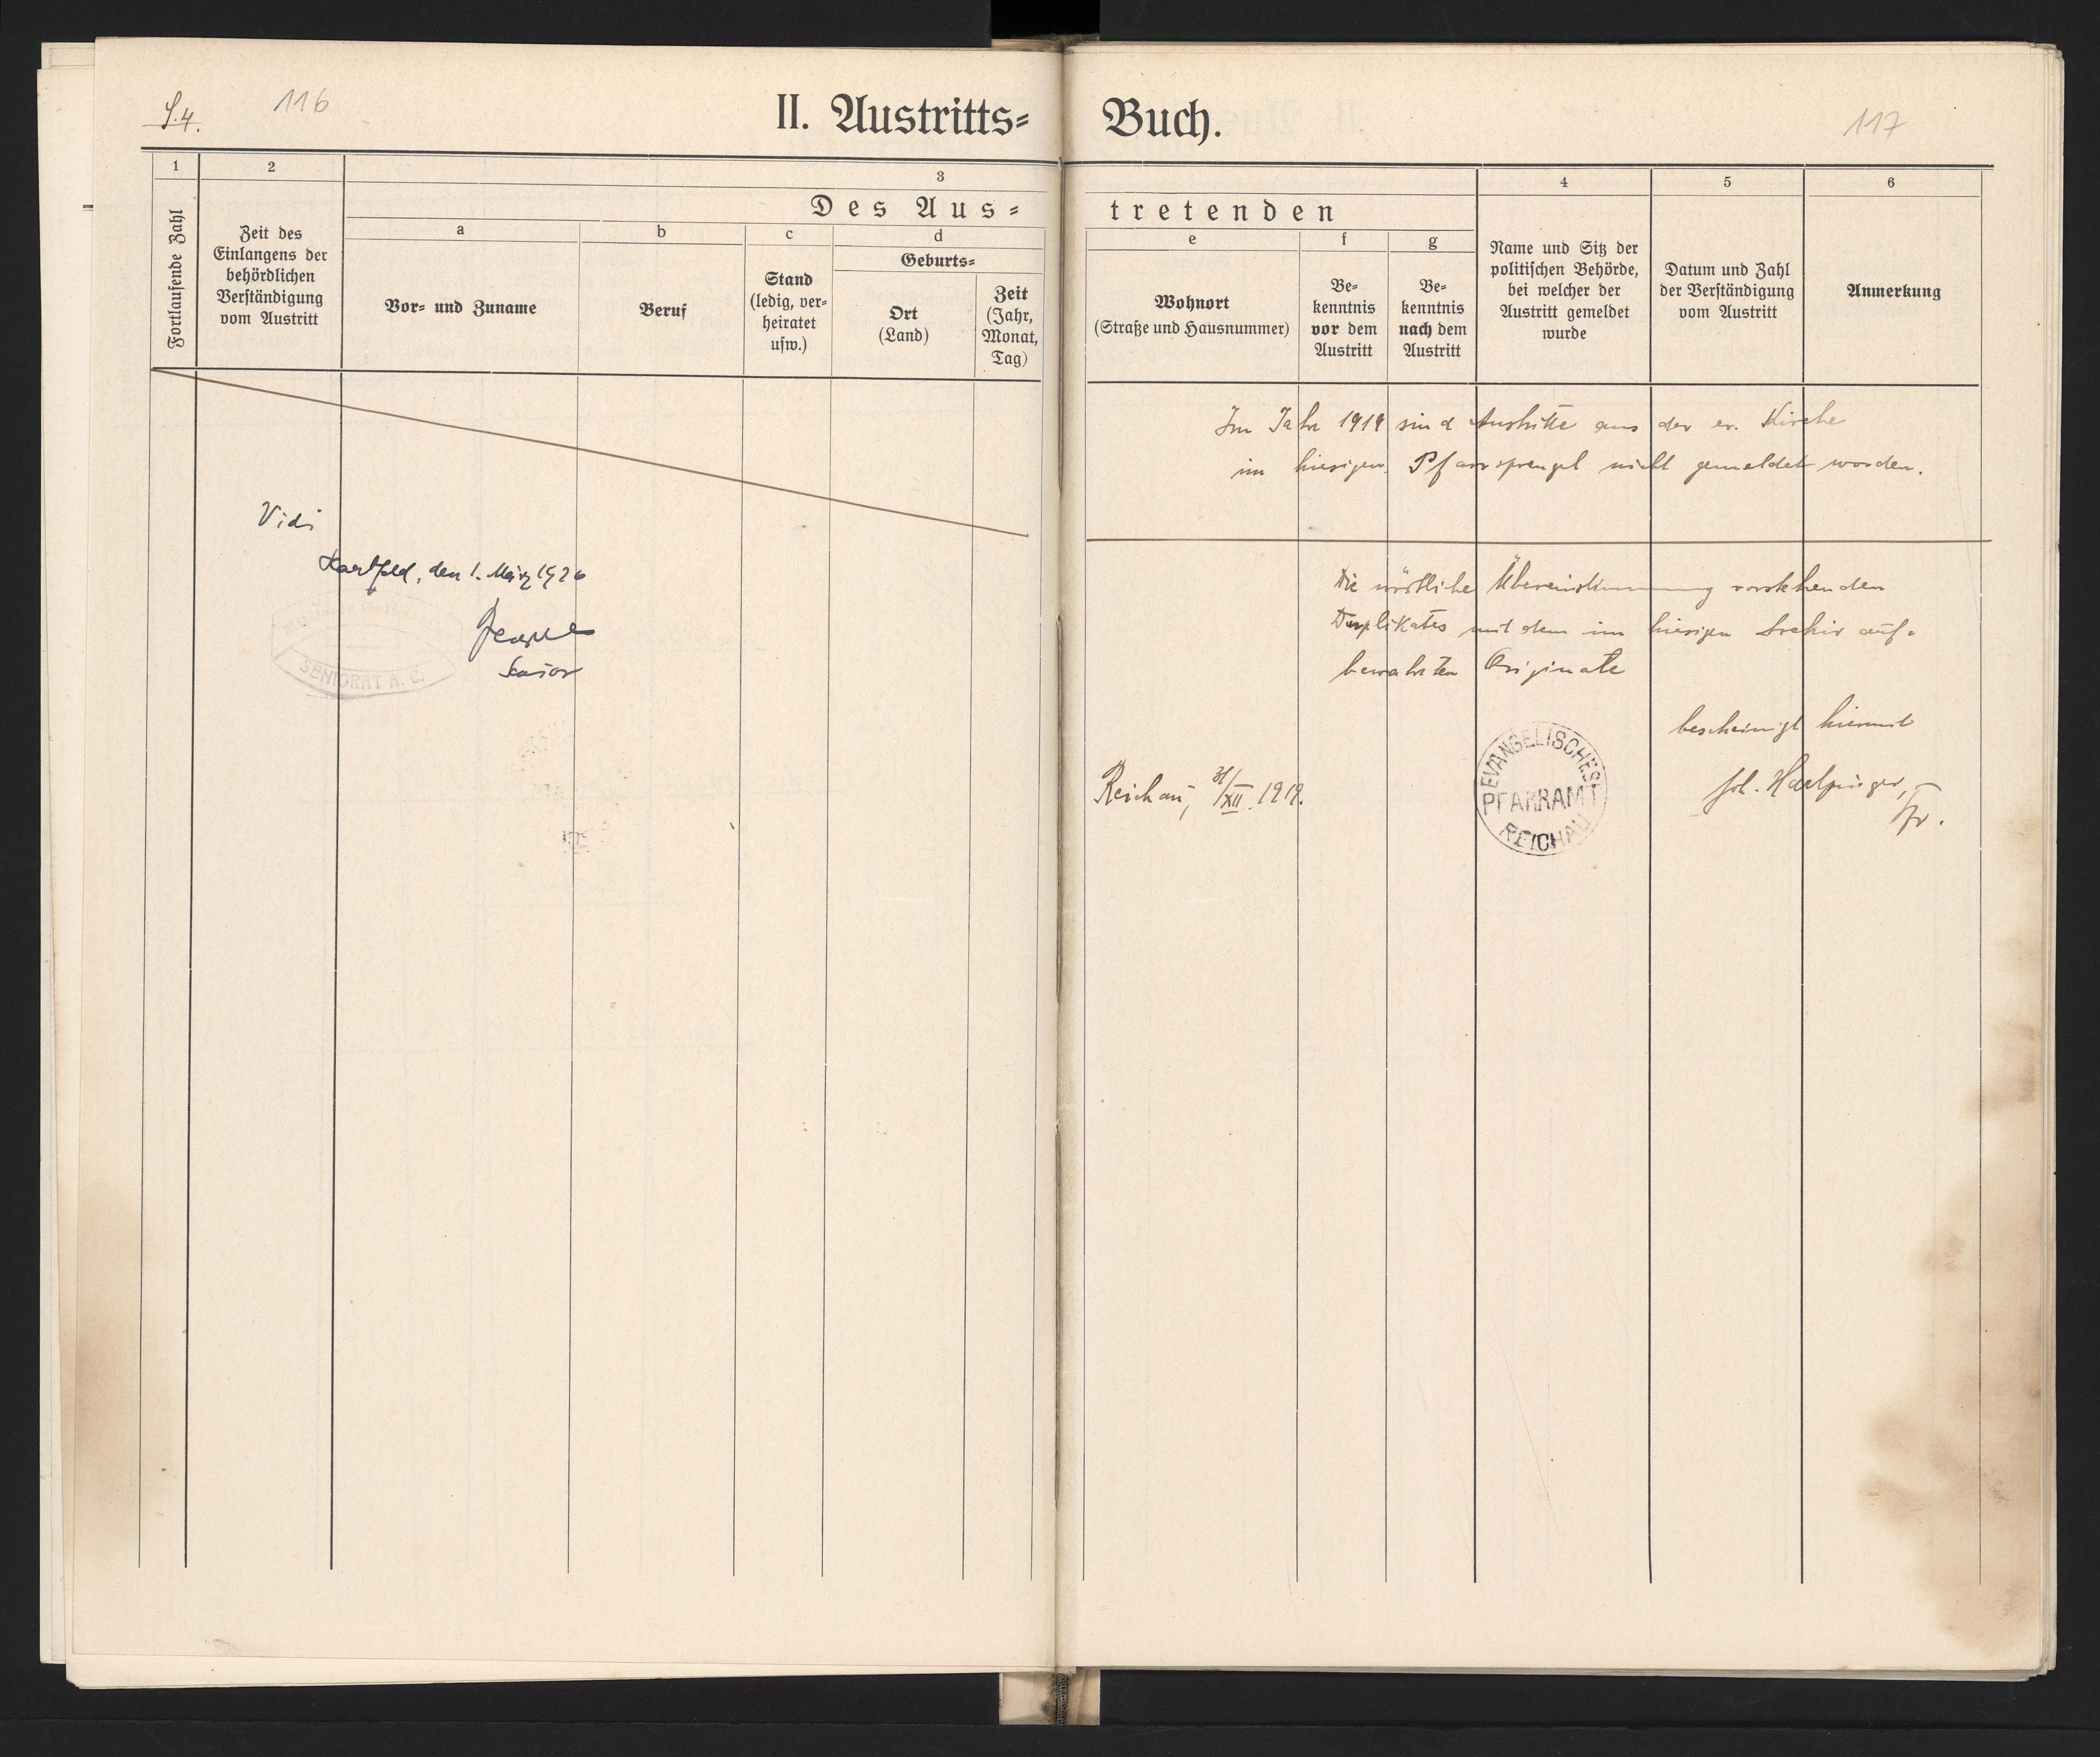 S. 4.
116
II. Austritts-
Buch.
117
1
2
3
4
5
6
Des Aus-
tretenden
a
b
c
d
e
f
g
Fortlaufende Zahl
Zeit des
Einlangens der
behördlichen
Verständigung
vom Austritt
Vor- und Zuname
Beruf
Stand
(ledig, ver-
heiratet
usw.)
Geburts-
Ort
(Land)
Zeit
(Jahr,
Monat,
Tag)
Wohnort
(Straße und Hausnummer)
Be-
kenntnis
vor dem
Austritt
Be-
kenntnis
nach dem
Austritt
Name und Sitz der
politischen Behörde,
bei welcher der
Austritt gemeldet
wurde
Datum und Zahl
der Verständigung
vom Austritt
Anmerkung
Im Jahr 1919 sind Austritte aus der ev. Kirche
im hiesigen Pfarrsprengel nicht gemeldet worden.
Vidi
den 1. März 1926
Senior
SENIORAT A. C.
Die wörtliche Übereinstimmung vorstehenden
Duplikates mit dem im hiesigen Archiv auf-
bewahrten Originale
bescheinigt hiermit
Reichau, 31/XII. 1919.
EVANGELISCHES
PFARRAMT
REICHAU
Joh. Hartpinger,
Pfr.